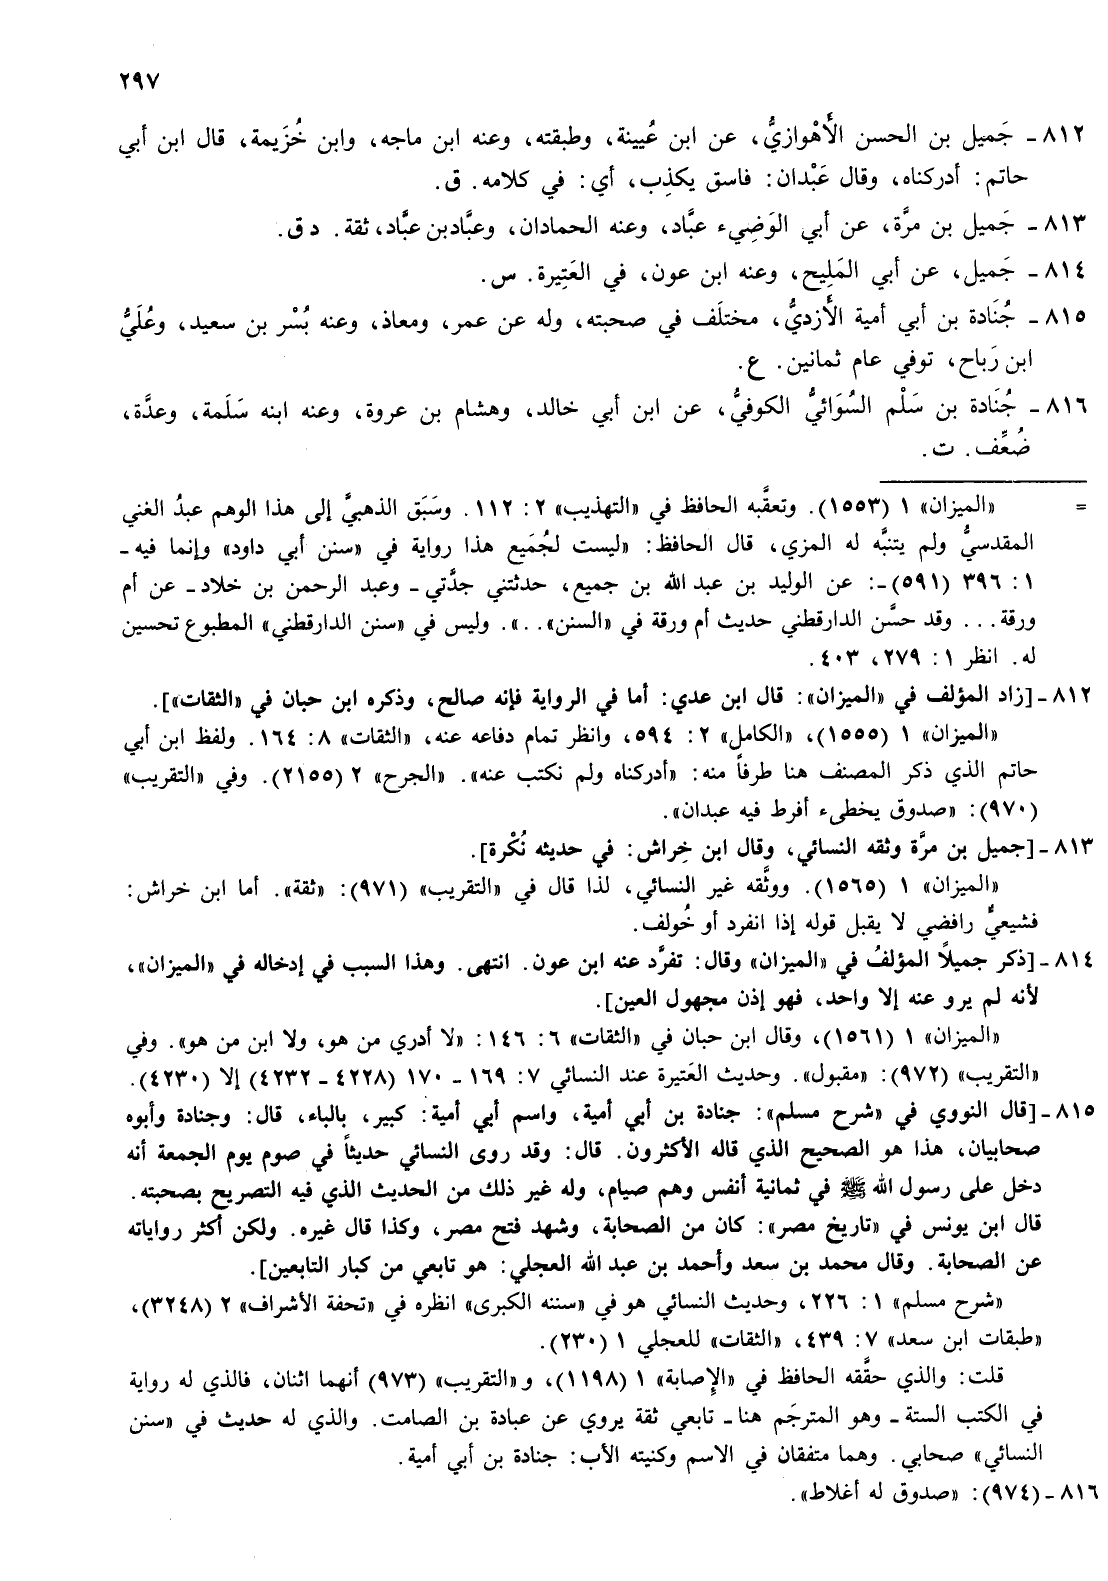 ٢٩٧
٨١٢ - جَميل بن الحسن الأَهْوازيُّ، عن ابن عُيينة، وطبقته، وعنه ابن ماجه، وابن خُزَيمة، قال ابن أبي
حاتم: أدركناه، وقال عَبْدان: فاسق يكذِب، أي: في كلامه. ق.
٨١٣ - جَميل بن مرَّة، عن أبي الوَضِيء عبَّاد، وعنه الحمادان، وعبَّادبن عبَّاد، ثقة. د ق.
٨١٤ - جَميل، عن أبي المَلِيح، وعنه ابن عون، في العَتِيرة. س.
٨١٥ - جُنَادة بن أبي أمية الأزديُّ، مختلَف في صحبته، وله عن عمر، ومعاذ، وعنه بُسْر بن سعيد، وعُلَيُّ
ابن رَباح، توفي عام ثمانين. ع.
٨١٦ - جُنَادة بن سَلْم السُوَائيُّ الكوفيُّ، عن ابن أبي خالد، وهشام بن عروة، وعنه ابنه سَلَمة، وعدَّة،
ضُعِّف. ت.
= «الميزان» ١ (١٥٥٣). وتعقَّبه الحافظ في «التهذيب» ٢: ١١٢. وسَبَق الذهبيَّ إلى هذا الوهم عبدُ الغني
المقدسيُّ ولم يتنبَّه له المزي، قال الحافظ: «ليست لجُمَيع هذا رواية في «سنن أبي داود» وإنما فيه -
١: ٣٩٦ (٥٩١) -: عن الوليد بن عبد الله بن جميع، حدثتني جدَّتي - وعبد الرحمن بن خلاد - عن أم
ورقة... وقد حسَّن الدارقطني حديث أم ورقة في «السنن»..». وليس في «سنن الدارقطني» المطبوع تحسين
له. انظر ١: ٢٧٩، ٤٠٣.
٨١٢ - [زاد المؤلف في «الميزان»: قال ابن عدي: أما في الرواية فإنه صالح، وذكره ابن حبان في «الثقات»].
«الميزان» ١ (١٥٥٥)، «الكامل» ٢: ٥٩٤، وانظر تمام دفاعه عنه، «الثقات» ٨: ١٦٤. ولفظ ابن أبي
حاتم الذي ذكر المصنف هنا طرفاً منه: «أدركناه ولم نكتب عنه». «الجرح» ٢ (٢١٥٥). وفي «التقريب»
(٩٧٠): «صدوق يخطىء أفرط فيه عبدان».
٨١٣ - [جميل بن مرَّة وثقه النسائي، وقال ابن خِراش: في حديثه نُكْرة].
«الميزان» ١ (١٥٦٥). ووثَّقه غير النسائي، لذا قال في «التقريب» (٩٧١): «ثقة». أما ابن خراش:
فشيعيٌّ رافضي لا يقبل قوله إذا انفرد أو خُولف.
٨١٤ - [ذكر جميلًا المؤلفُ في «الميزان» وقال: تفرَّد عنه ابن عون. انتهى. وهذا السبب في إدخاله في «الميزان»،
لأنه لم يرو عنه إلا واحد، فهو إذن مجهول العين].
«الميزان» ١ (١٥٦١)، وقال ابن حبان في «الثقات» ٦: ١٤٦: «لا أدري من هو، ولا ابن من هو». وفي
«التقريب» (٩٧٢): «مقبول». وحديث العَتيرة عند النسائي ٧: ١٦٩ - ١٧٠ (٤٢٢٨ - ٤٢٣٢) إلا (٤٢٣٠).
٨١٥ - [قال النووي في «شرح مسلم»: جنادة بن أبي أمية، واسم أبي أمية: كبير، بالباء، قال: وجنادة وأبوه
صحابيان، هذا هو الصحيح الذي قاله الأكثرون. قال: وقد روى النسائي حديثاً في صوم يوم الجمعة أنه
دخل على رسول الله ﷺ في ثمانية أنفس وهم صيام، وله غير ذلك من الحديث الذي فيه التصريح بصحبته.
قال ابن يونس في «تاريخ مصر»: كان من الصحابة، وشهد فتح مصر، وكذا قال غيره. ولكن أكثر رواياته
عن الصحابة. وقال محمد بن سعد وأحمد بن عبد الله العجلي: هو تابعي من كبار التابعين].
«شرح مسلم» ١: ٢٢٦، وحديث النسائي هو في «سننه الكبرى» انظره في «تحفة الأشراف» ٢ (٣٢٤٨)،
«طبقات ابن سعد» ٧: ٤٣٩، «الثقات» للعجلي ١ (٢٣٠).
قلت: والذي حقَّقه الحافظ في «الإصابة» ١ (١١٩٨)، و «التقريب» (٩٧٣) أنهما اثنان، فالذي له رواية
في الكتب الستة - وهو المترجَم هنا - تابعي ثقة يروي عن عبادة بن الصامت. والذي له حديث في «سنن
النسائي» صحابي. وهما متفقان في الاسم وكنيته الأب: جنادة بن أبي أمية.
٨١٦ - (٩٧٤): «صدوق له أغلاط».